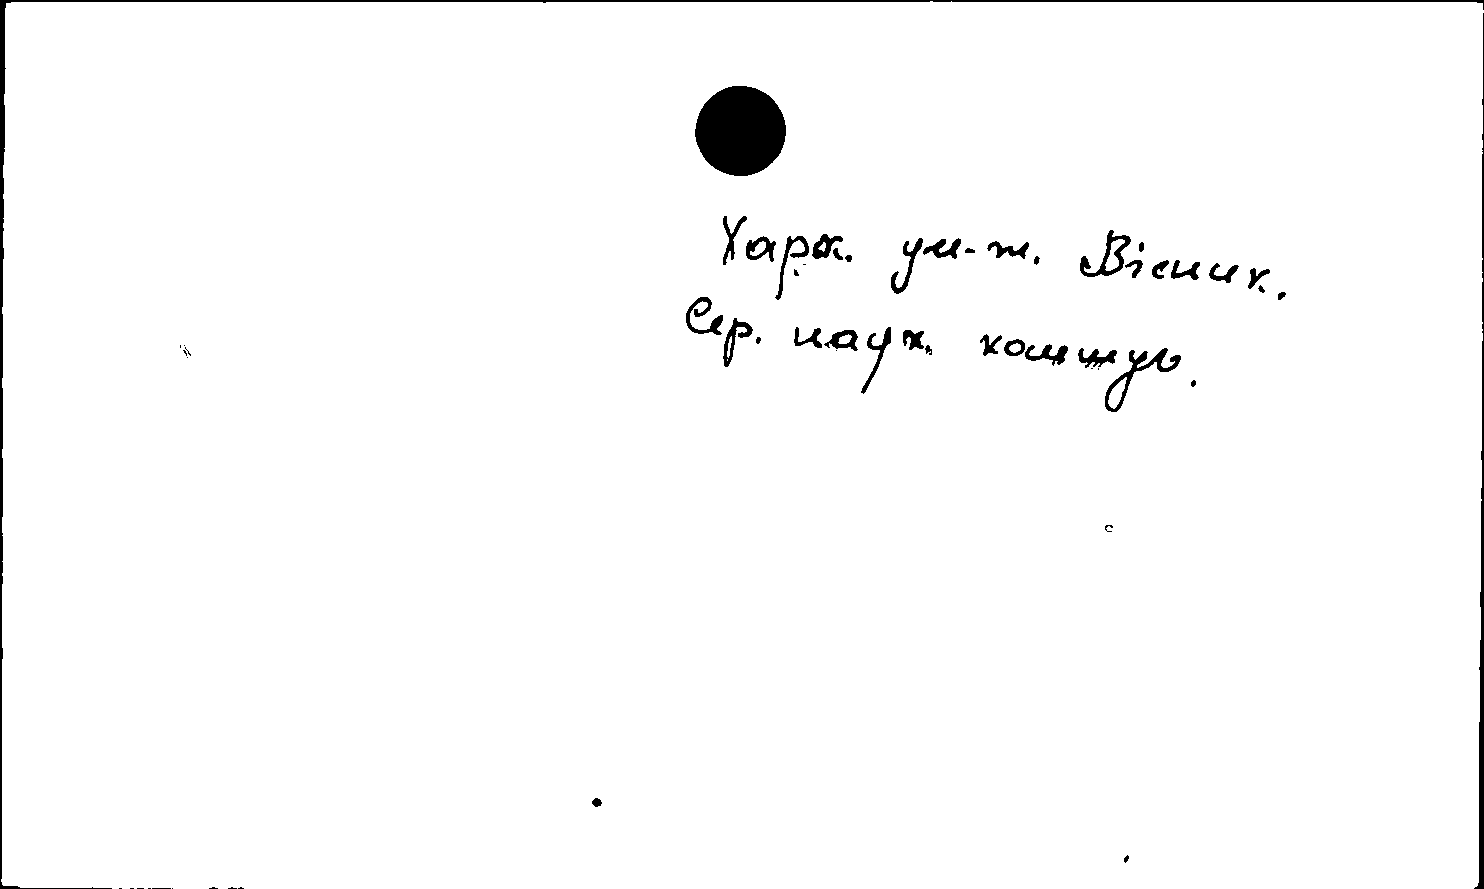 Харк. ун-т. Вісник.
Сер. наук. комму.